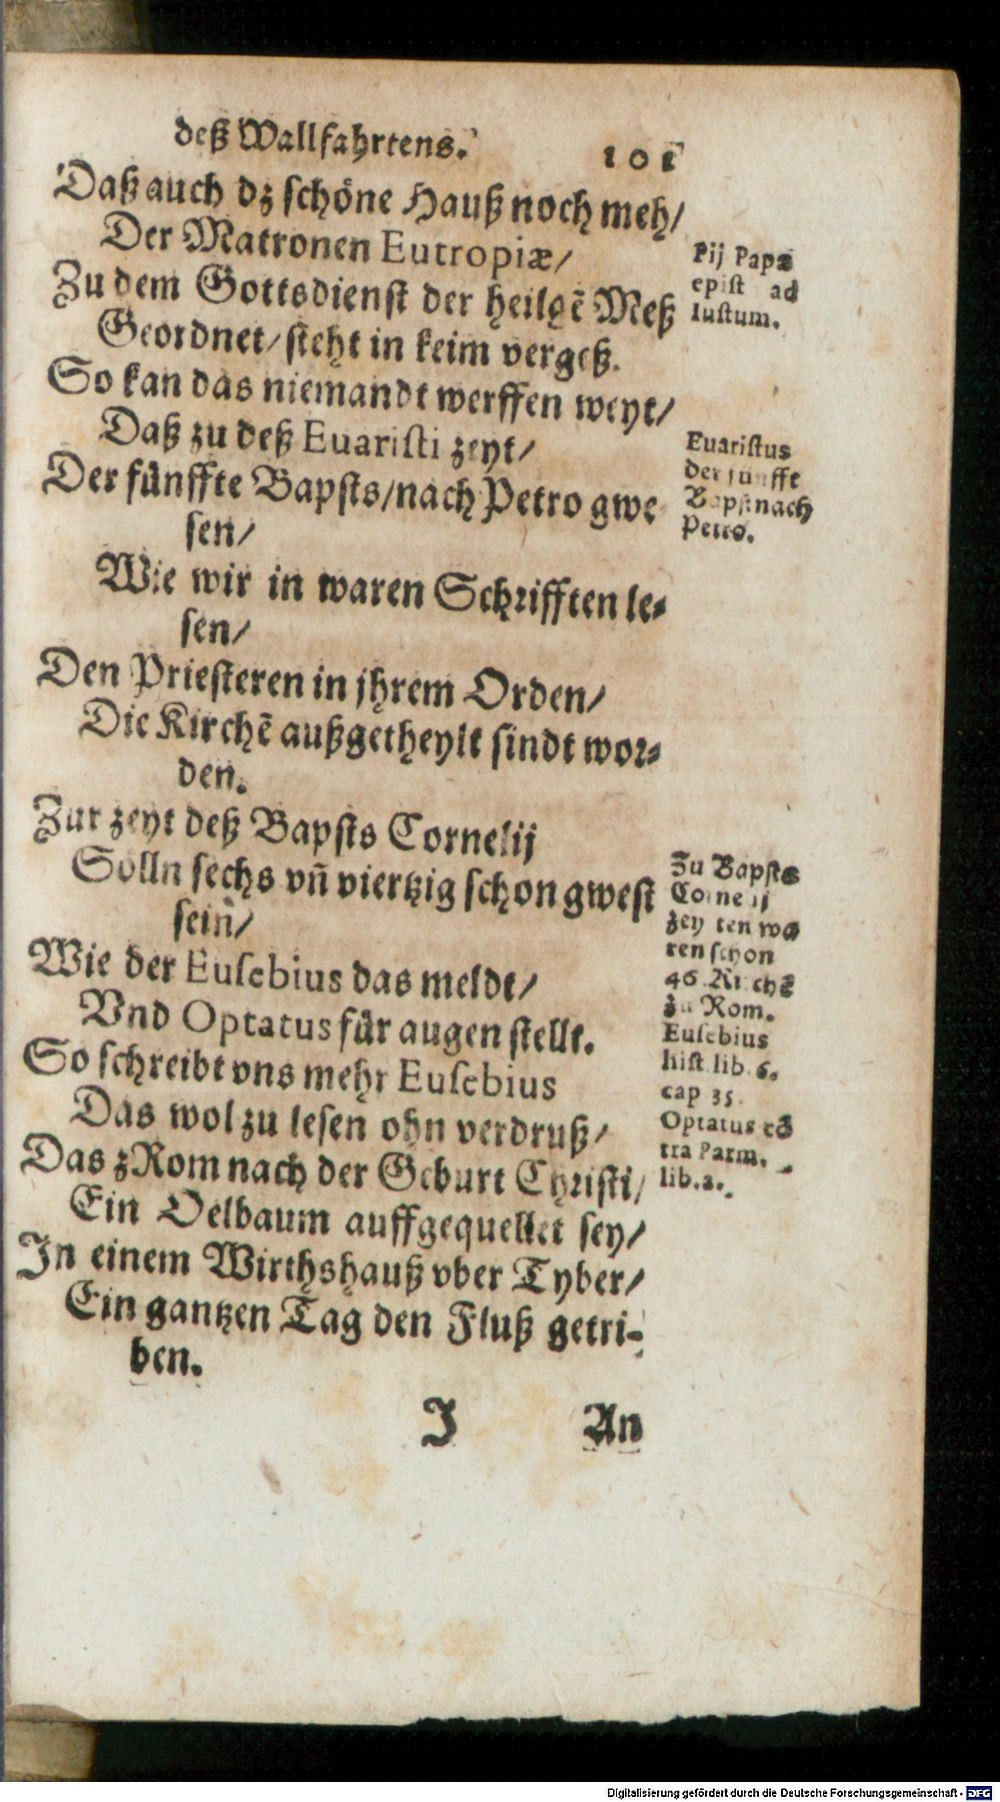 deß Wallfahrtens. 101
Daß auch dz schöne Hauß noch meh/
Der Matronen Eutropiæ/
Zu dem Gottsdienst der heilgẽ Meß
Geordnet/ steht in keim vergeß.
So kan das niemandt werffen weyt/
Daß zu deß Euaristi zeyt/
Der fünffte Bapsts/ nach Petro gwe
sen/
Wie wir in waren Schrifften le-
sen/
Den Priesteren in jhrem Orden/
Die Kirchẽ außgetheylt sindt wor-
den.
Zur zeyt deß Bapsts Cornelij
Solln sechs vñ viertzig schon gwest
sein/
Wie der Eusebius das meldt/
Vnd Optatus für augen stellt.
So schreibt vns mehr Eusebius
Das wol zu lesen ohn verdruß/
Das zRom nach der Geburt Christi/
Ein Oelbaum auffgequellet sey/
In einem Wirthshauß vber Tyber/
Ein gantzen Tag den Fluß getri-
ben.
I An
Pij Papæ
epist ad
Iustum.
Euaristus
der fünffte
Bapst nach
Petro.
Zu Bapsts
Cornelij
zeyten wa
ren schon
46. Kirchẽ
zu Rom.
Eusebius
hist. lib. 6.
cap 35.
Optatus cõ
tra Parm.
lib. 2.
Digitalisierung gefördert durch die Deutsche Forschungsgemeinschaft - DFG